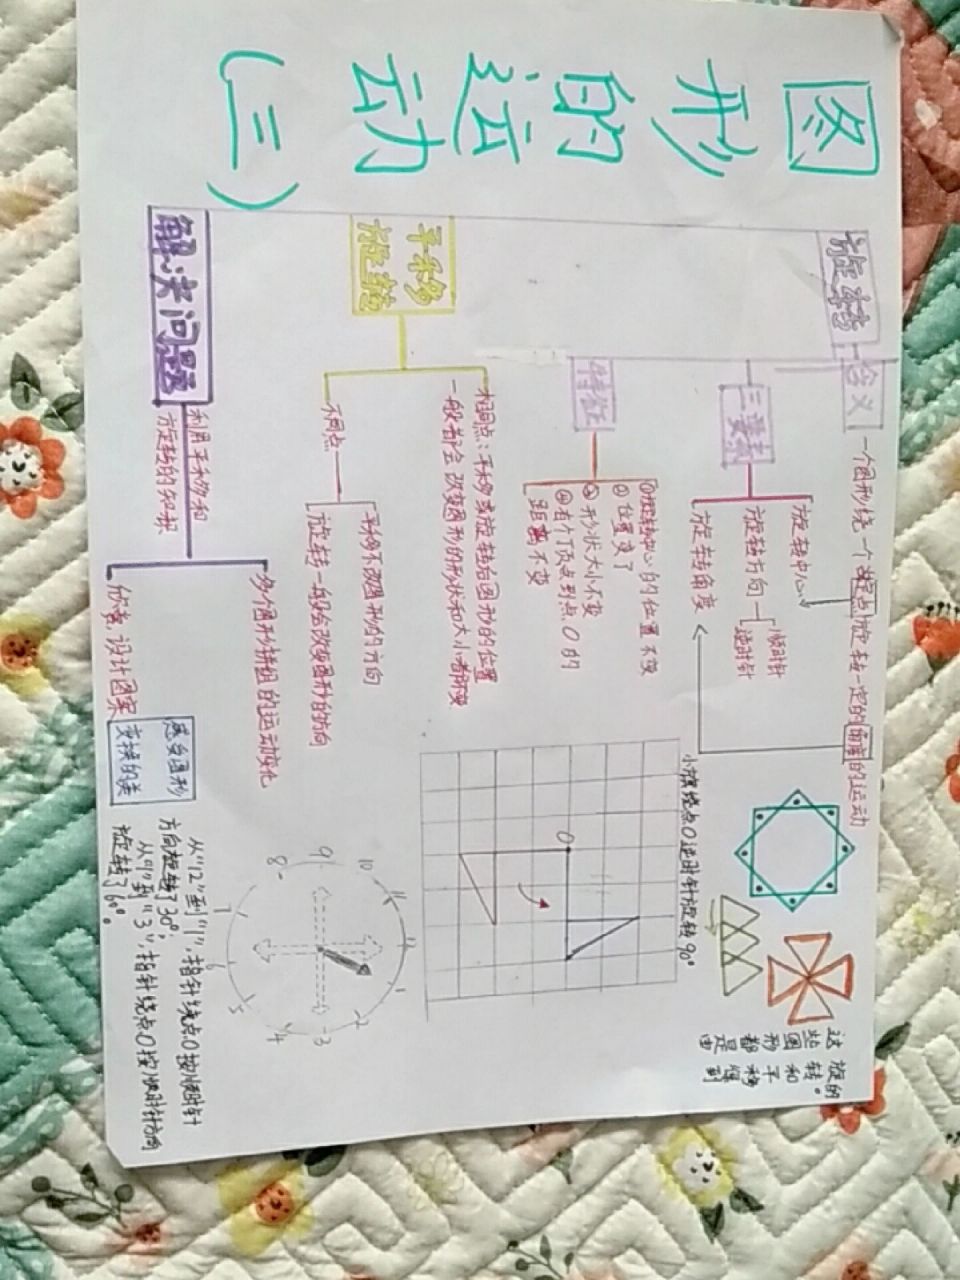 图形的运动
(三)
旋转
含义
一个图形绕一个定点旋转一定的角度的运动
三要素
旋转中心
旋转方向
顺时针
逆时针
旋转角度
特征
①旋转中心的位置不变
②位置变了
③形状大小不变
④各个顶点到点O的
距离不变
平移
旋转
相同点：平移或旋转后图形的位置
一般都会改变图形的形状和大小都不变
不同点
平移不改图形的方向
旋转一般会改变图形的方向
解决问题
利用平移和
旋转的知识
多个图形拼组的运动变化
仿客 设计图案
这些图形都是由
旋转和平移得到
的。
小旗绕点O逆时针旋转90°
O
11
1
2
3
4
5
6
7
8
9
10
感受图形
变换的美
从"12"到"1"，指针绕点O按顺时针
方向旋转了30°；
从"1"到"3"，指针绕点O按顺时针方向
旋转了60°。